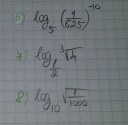 6) log₅ (1/625)⁻¹⁰
7) log_{1/2} ∛4
8) log₁₀ √(1/1000)